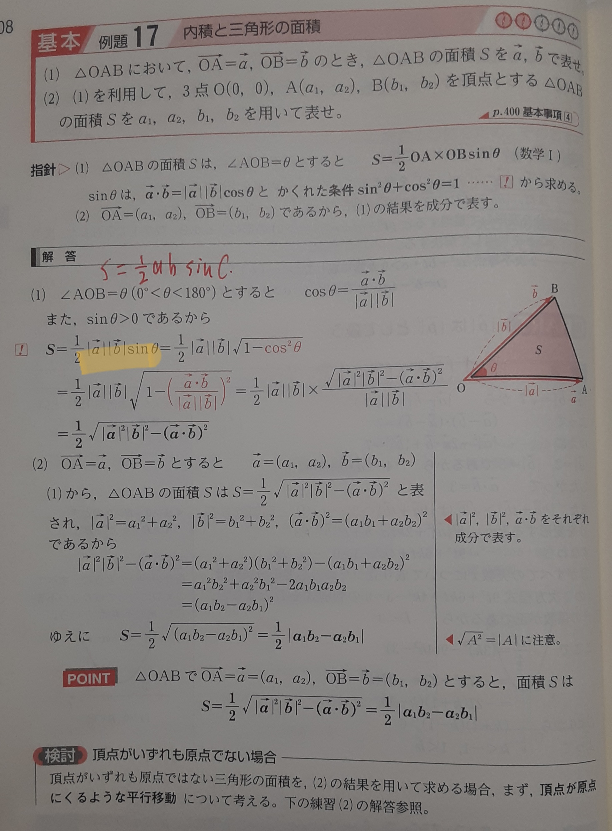 08
基本 例題 17 内積と三角形の面積
(1) △OABにおいて,OA=a,OB=b のとき,△OABの面積Sをa,b で表せ.
(2) (1)を利用して,3点O(0, 0),A(a₁, a₂),B(b₁, b₂)を頂点とする△OAB
の面積Sをa₁,a₂,b₁,b₂を用いて表せ。
p.400 基本事項 4
指針▷(1) △OABの面積Sは,∠AOB=θとすると S=1/2 OA×OB sinθ (数学Ⅰ)
sinθは,a・b=|a||b|cosθと かくれた条件 sin²θ+cos²θ=1 …… ! から求める。
(2) OA=(a₁, a₂),OB=(b₁, b₂)であるから,(1)の結果を成分で表す。
解答
S=1/2 ab sin C.
(1) ∠AOB=θ(0°<θ<180°)とすると cosθ=a・b/|a||b|
また,sinθ>0であるから
! S=1/2|a||b|sinθ=1/2|a||b|√(1−cos²θ)
=1/2|a||b|√(1−(a・b/|a||b|)²)=1/2|a||b|×√(|a|²|b|²−(a・b)²)/|a||b|
=1/2√(|a|²|b|²−(a・b)²)
b B
|b|
S
θ
O |a| a A
(2) OA=a,OB=bとすると a=(a₁, a₂),b=(b₁, b₂)
(1)から,△OABの面積SはS=1/2√(|a|²|b|²−(a・b)²) と表
され,|a|²=a₁²+a₂²,|b|²=b₁²+b₂²,(a・b)²=(a₁b₁+a₂b₂)²
であるから
◀|a|²,|b|²,a・bをそれぞれ
成分で表す。
|a|²|b|²−(a・b)²=(a₁²+a₂²)(b₁²+b₂²)−(a₁b₁+a₂b₂)²
=a₁²b₂²+a₂²b₁²−2a₁b₁a₂b₂
=(a₁b₂−a₂b₁)²
ゆえに S=1/2√((a₁b₂−a₂b₁)²)=1/2|a₁b₂−a₂b₁|
◀√A²=|A|に注意。
POINT △OABでOA=a=(a₁, a₂),OB=b=(b₁, b₂)とすると,面積Sは
S=1/2√(|a|²|b|²−(a・b)²)=1/2|a₁b₂−a₂b₁|
検討 頂点がいずれも原点でない場合
頂点がいずれも原点ではない三角形の面積を,(2)の結果を用いて求める場合,まず,頂点が原点
にくるような平行移動 について考える。下の練習(2)の解答参照。